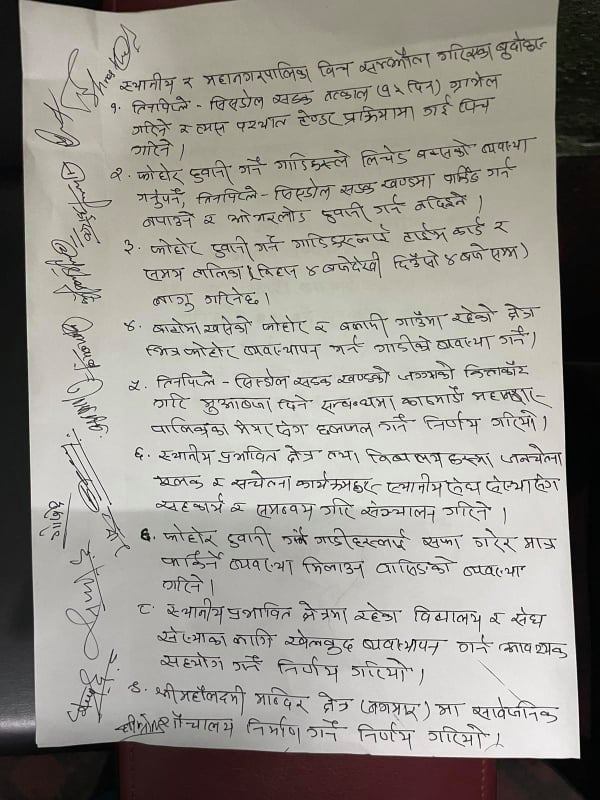 स्थानीय र महानगरपालिका बिच सम्झौता गरिएका बुदाहरु
१. तिनपिप्ले - सिसडोल सडक तत्काल (१५ दिन) ग्राभेल
गरिने र त्यस पश्चात टेण्डर प्रक्रियामा गई पिच
गरिने ।
२. फोहोर ढुवानी गर्ने गाडिहरुले लिचेड बक्सको व्यवस्था
गर्नुपर्ने, तिनपिप्ले - सिसडोल सडक खण्डमा पार्किङ गर्न
नपाउने र ओभरलोड ढुवानी गर्न नदिइने ।
३. फोहोर ढुवानी गर्ने गाडिहरुलाई टाईम कार्ड र
समय तालिका (बिहान ४ बजेदेखी दिउँसो ४ बजे सम्म)
लागु गरिनेछ ।
४. बाटोमा खसेको फोहोर र बस्ती गाउँमा रहेको क्षेत्र
भित्र फोहोर व्यवस्थापन गर्न गाडीको व्यवस्था गर्ने ।
५. तिनपिप्ले - सिसडोल सडक खण्डको जग्गाको कित्ताकाँट
गरि मुआब्जा दिने सम्बन्धमा काठमाडौं महानगर-
पालिकाका मेयर संग छलफल गर्ने निर्णय गरियो ।
६. स्थानीय प्रभावित क्षेत्र तथा विद्यालय हरुमा जनचेतना
मूलक र सचेतना कार्यक्रमहरु स्थानीय संघ संस्था संग
सहकार्य र समन्वय गरि संञ्चालन गरिने ।
७. फोहोर ढुवानी गर्ने गाडीहरुलाई सफा गरेर मात्र
फर्किने व्यवस्था मिलाउन वासिङको व्यवस्था
गरिने ।
८. स्थानीय प्रभावित क्षेत्रमा रहेका विद्यालय र संघ
संस्थाका लागि खेलकुद व्यवस्थापन गर्न आवश्यक
सहयोग गर्ने निर्णय गरियो ।
९. श्री महालक्ष्मी मन्दिर क्षेत्र मा सार्वजनिक
शौचालय निर्माण गर्ने निर्णय गरियो ।